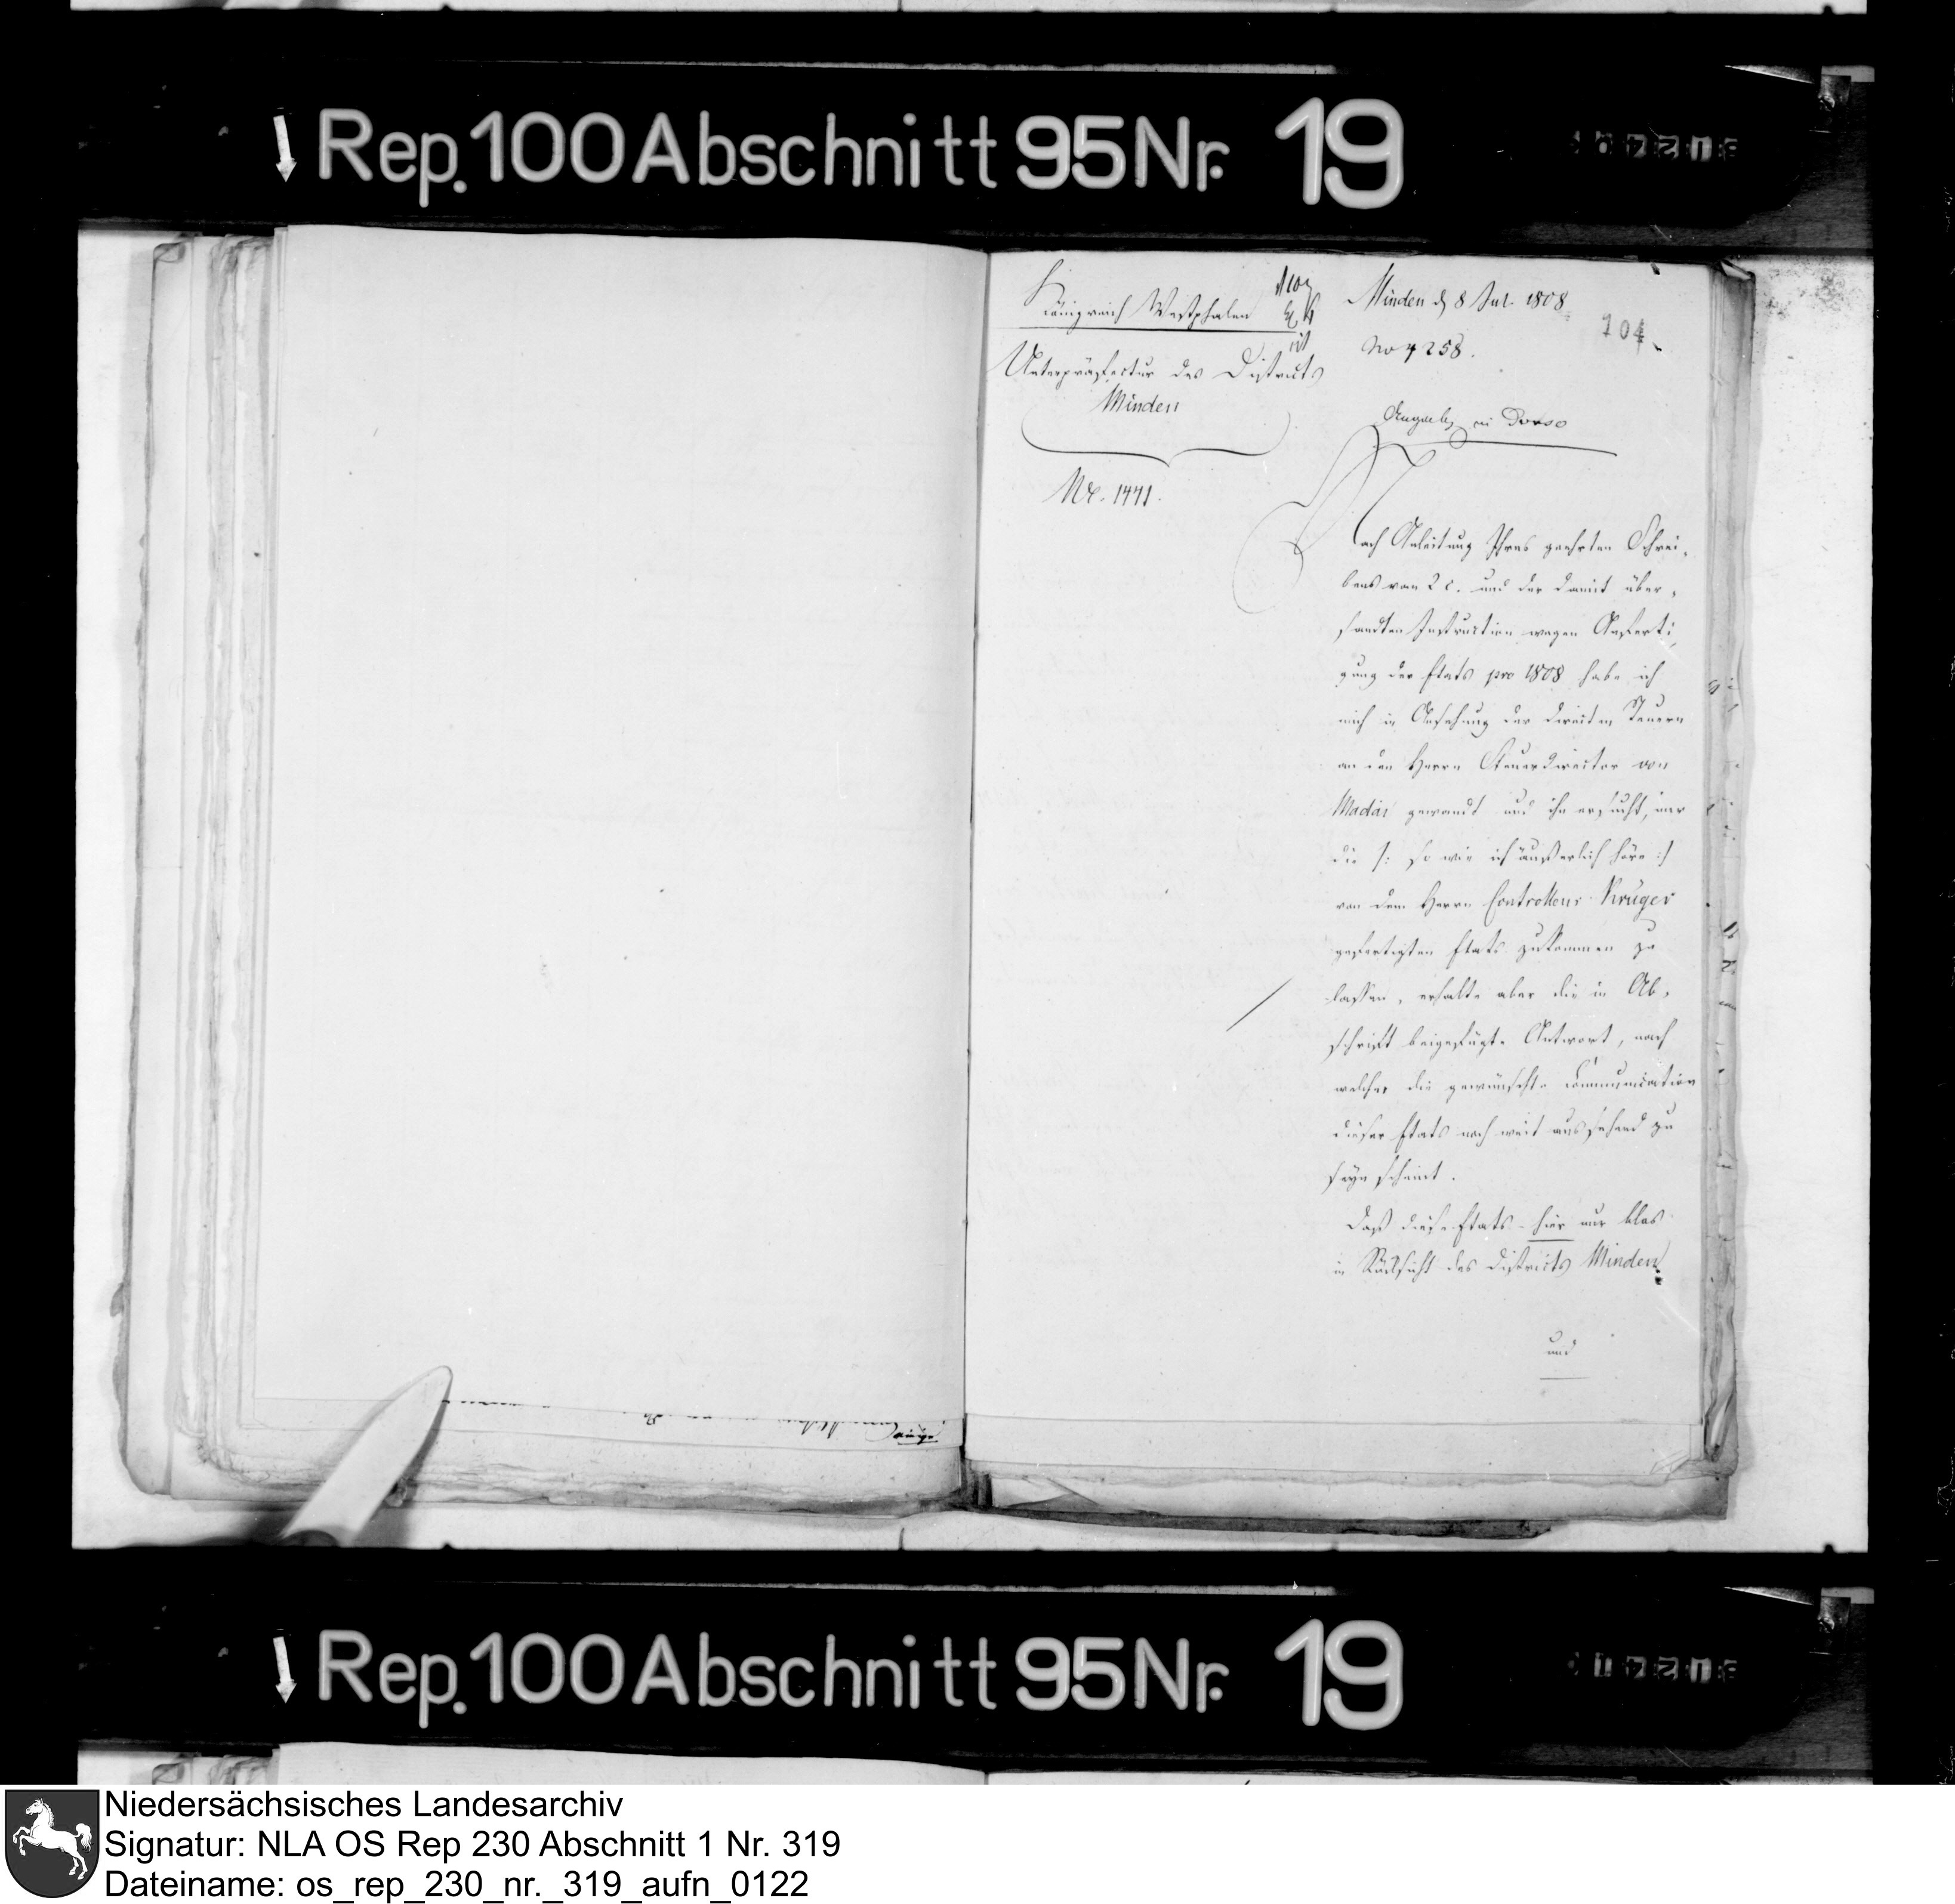 Rep. 100 Abschnitt 95 Nr. 19
Königreich Westphalen
Unterpräfectur des Districts
Minden
Nr. 1441.
Minden d 8 Jul. 1808
104
No 4258.
in Dorso
Nach Anleitung Ihres geehrten Schrei-
bens vom 2 c. und der damit über-
sandten Instruction wegen Anferti-
gung der Etats pro 1808 habe ich
mich in Ansehung der directen Steuern
an den Herrn Steuerdirector von
gewandt und ihn ersucht, mir
die /: so wie ich äußerlich höre :/
von dem Herrn Controlleur Krüger
gefertigten Etats zukommen zu
lassen, erhalte aber die in Ab-
schrift beigefügte Antwort, nach
welcher die gewünschte Communication
dieser Etats noch weit aussehend zu
seyn scheint.
Daß diese Etats hier nur blos
in Rücksicht des Districts Minden
und
Rep. 100 Abschnitt 95 Nr. 19
Niedersächsisches Landesarchiv
Signatur: NLA OS Rep 230 Abschnitt 1 Nr. 319
Dateiname: os_rep_230_nr._319_aufn_0122